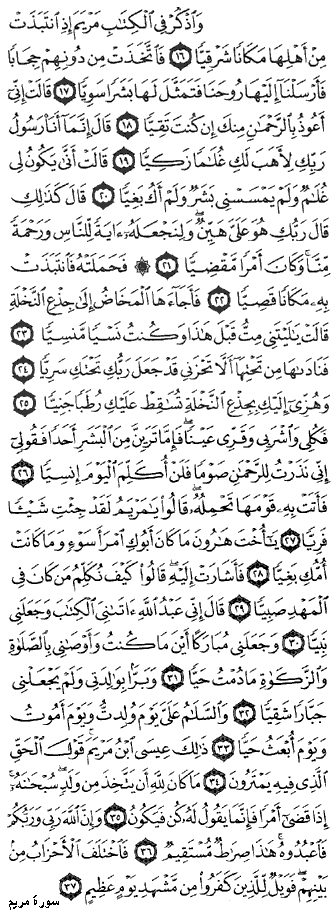 وَٱذۡكُرۡ فِي ٱلۡكِتَٰبِ مَرۡيَمَ إِذِ ٱنتَبَذَتۡ
مِنۡ أَهۡلِهَا مَكَانٗا شَرۡقِيّٗا ١٦ فَٱتَّخَذَتۡ مِن دُونِهِمۡ حِجَابٗا
فَأَرۡسَلۡنَآ إِلَيۡهَا رُوحَنَا فَتَمَثَّلَ لَهَا بَشَرٗا سَوِيّٗا ١٧ قَالَتۡ إِنِّيٓ
أَعُوذُ بِٱلرَّحۡمَٰنِ مِنكَ إِن كُنتَ تَقِيّٗا ١٨ قَالَ إِنَّمَآ أَنَا۠ رَسُولُ
رَبِّكِ لِأَهَبَ لَكِ غُلَٰمٗا زَكِيّٗا ١٩ قَالَتۡ أَنَّىٰ يَكُونُ لِي
غُلَٰمٞ وَلَمۡ يَمۡسَسۡنِي بَشَرٞ وَلَمۡ أَكُ بَغِيّٗا ٢٠ قَالَ كَذَٰلِكِ
قَالَ رَبُّكِ هُوَ عَلَيَّ هَيِّنٞۖ وَلِنَجۡعَلَهُۥٓ ءَايَةٗ لِّلنَّاسِ وَرَحۡمَةٗ
مِّنَّاۚ وَكَانَ أَمۡرٗا مَّقۡضِيّٗا ٢١ ۞ فَحَمَلَتۡهُ فَٱنتَبَذَتۡ
بِهِۦ مَكَانٗا قَصِيّٗا ٢٢ فَأَجَآءَهَا ٱلۡمَخَاضُ إِلَىٰ جِذۡعِ ٱلنَّخۡلَةِ
قَالَتۡ يَٰلَيۡتَنِي مِتُّ قَبۡلَ هَٰذَا وَكُنتُ نَسۡيٗا مَّنسِيّٗا ٢٣
فَنَادَىٰهَا مِن تَحۡتِهَآ أَلَّا تَحۡزَنِي قَدۡ جَعَلَ رَبُّكِ تَحۡتَكِ سَرِيّٗا ٢٤
وَهُزِّيٓ إِلَيۡكِ بِجِذۡعِ ٱلنَّخۡلَةِ تُسَٰقِطۡ عَلَيۡكِ رُطَبٗا جَنِيّٗا ٢٥
فَكُلِي وَٱشۡرَبِي وَقَرِّي عَيۡنٗاۖ فَإِمَّا تَرَيِنَّ مِنَ ٱلۡبَشَرِ أَحَدٗا فَقُولِيٓ
إِنِّي نَذَرۡتُ لِلرَّحۡمَٰنِ صَوۡمٗا فَلَنۡ أُكَلِّمَ ٱلۡيَوۡمَ إِنسِيّٗا ٢٦
فَأَتَتۡ بِهِۦ قَوۡمَهَا تَحۡمِلُهُۥۖ قَالُواْ يَٰمَرۡيَمُ لَقَدۡ جِئۡتِ شَيۡـٔٗا
فَرِيّٗا ٢٧ يَٰٓأُخۡتَ هَٰرُونَ مَا كَانَ أَبُوكِ ٱمۡرَأَ سَوۡءٖ وَمَا كَانَتۡ
أُمُّكِ بَغِيّٗا ٢٨ فَأَشَارَتۡ إِلَيۡهِۖ قَالُواْ كَيۡفَ نُكَلِّمُ مَن كَانَ فِي
ٱلۡمَهۡدِ صَبِيّٗا ٢٩ قَالَ إِنِّي عَبۡدُ ٱللَّهِ ءَاتَىٰنِيَ ٱلۡكِتَٰبَ وَجَعَلَنِي
نَبِيّٗا ٣٠ وَجَعَلَنِي مُبَارَكًا أَيۡنَ مَا كُنتُ وَأَوۡصَٰنِي بِٱلصَّلَوٰةِ
وَٱلزَّكَوٰةِ مَا دُمۡتُ حَيّٗا ٣١ وَبَرَّۢا بِوَٰلِدَتِي وَلَمۡ يَجۡعَلۡنِي
جَبَّارٗا شَقِيّٗا ٣٢ وَٱلسَّلَٰمُ عَلَيَّ يَوۡمَ وُلِدتُّ وَيَوۡمَ أَمُوتُ
وَيَوۡمَ أُبۡعَثُ حَيّٗا ٣٣ ذَٰلِكَ عِيسَى ٱبۡنُ مَرۡيَمَۖ قَوۡلَ ٱلۡحَقِّ
ٱلَّذِي فِيهِ يَمۡتَرُونَ ٣٤ مَا كَانَ لِلَّهِ أَن يَتَّخِذَ مِن وَلَدٖۖ سُبۡحَٰنَهُۥٓۚ
إِذَا قَضَىٰٓ أَمۡرٗا فَإِنَّمَا يَقُولُ لَهُۥ كُن فَيَكُونُ ٣٥ وَإِنَّ ٱللَّهَ رَبِّي وَرَبُّكُمۡ
فَٱعۡبُدُوهُۚ هَٰذَا صِرَٰطٞ مُّسۡتَقِيمٞ ٣٦ فَٱخۡتَلَفَ ٱلۡأَحۡزَابُ مِنۢ
بَيۡنِهِمۡۖ فَوَيۡلٞ لِّلَّذِينَ كَفَرُواْ مِن مَّشۡهَدِ يَوۡمٍ عَظِيمٍ ٣٧
سورة مريم